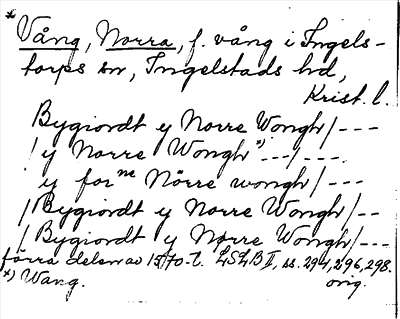 * Vång, Norra, f. vång i Ingels-
torps sn, Ingelstads hd,
Krist. l.
Bygiordt y Norre Wongh/---
/y Norre Wongh*)---/---
y for ne Nörre wongh/---
/Bygiordt y Norre Wongh/--
/Bygiordt y Norre Wongh/---
förra delen av 1570-t. LSLB II, ss. 294, 296, 298.
*) Wang. orig.